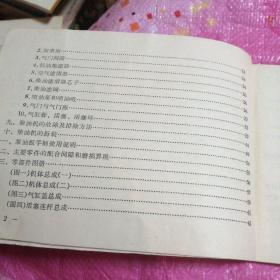 2.加机油
3.气门间隙
4.机油滤清器
5.空气滤清器
6.柴油滤清器芯子
7.柴油滤网
8.喷油泵和喷油咀
9.气门与气门座
10.气缸套、活塞、活塞环
九、柴油机的故障及排除方法
十、柴油机的拆装
一、泵油扳手柄使用说明
二、主要零件的配合间隙和磨损界限
三、零部件图册
(图一)机体总成(一)
(图二)机体总成(二)
(图三)气缸盖总成
(图四)活塞连杆总成
2 —